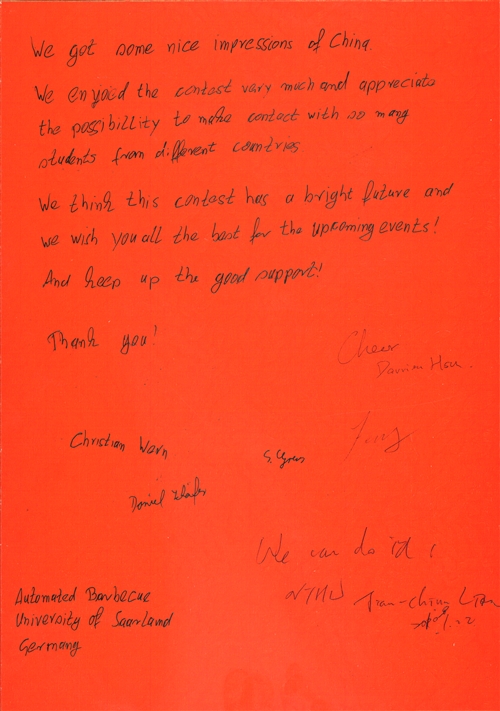 We got some nice impressions of China.
We enjoied the contest vary much and appreciate
the possibillity to make contact with so many
students from different countries.
We think this contest has a bright future and
we wish you all the best for the upcoming events!
And keep up the good support!
Thank you!
Cheer
Christian Wern
Daniel
We can do it!
NTHU
Automated Barbecue
University of Saarland
Germany